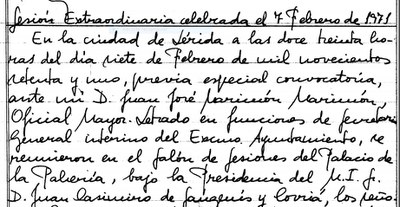 Sesión Extraordinaria celebrada el 7 Febrero de 1971
En la ciudad de Lérida a las doce treinta ho-
ras del dia siete de Febrero de mil novecientos
setenta y uno, previa especial convocatoria,
ante mi D. Juan José Marimón Marimón,
Oficial Mayor-Letrado en funciones de Secretario
General interino del Excmo. Ayuntamiento, se
reunieron en el Salón de Sesiones del Palacio de
la Pahería, bajo la Presidencia del M.I. Sr.
D. Juan Casimiro de Sangenís y Corriá, los seño-